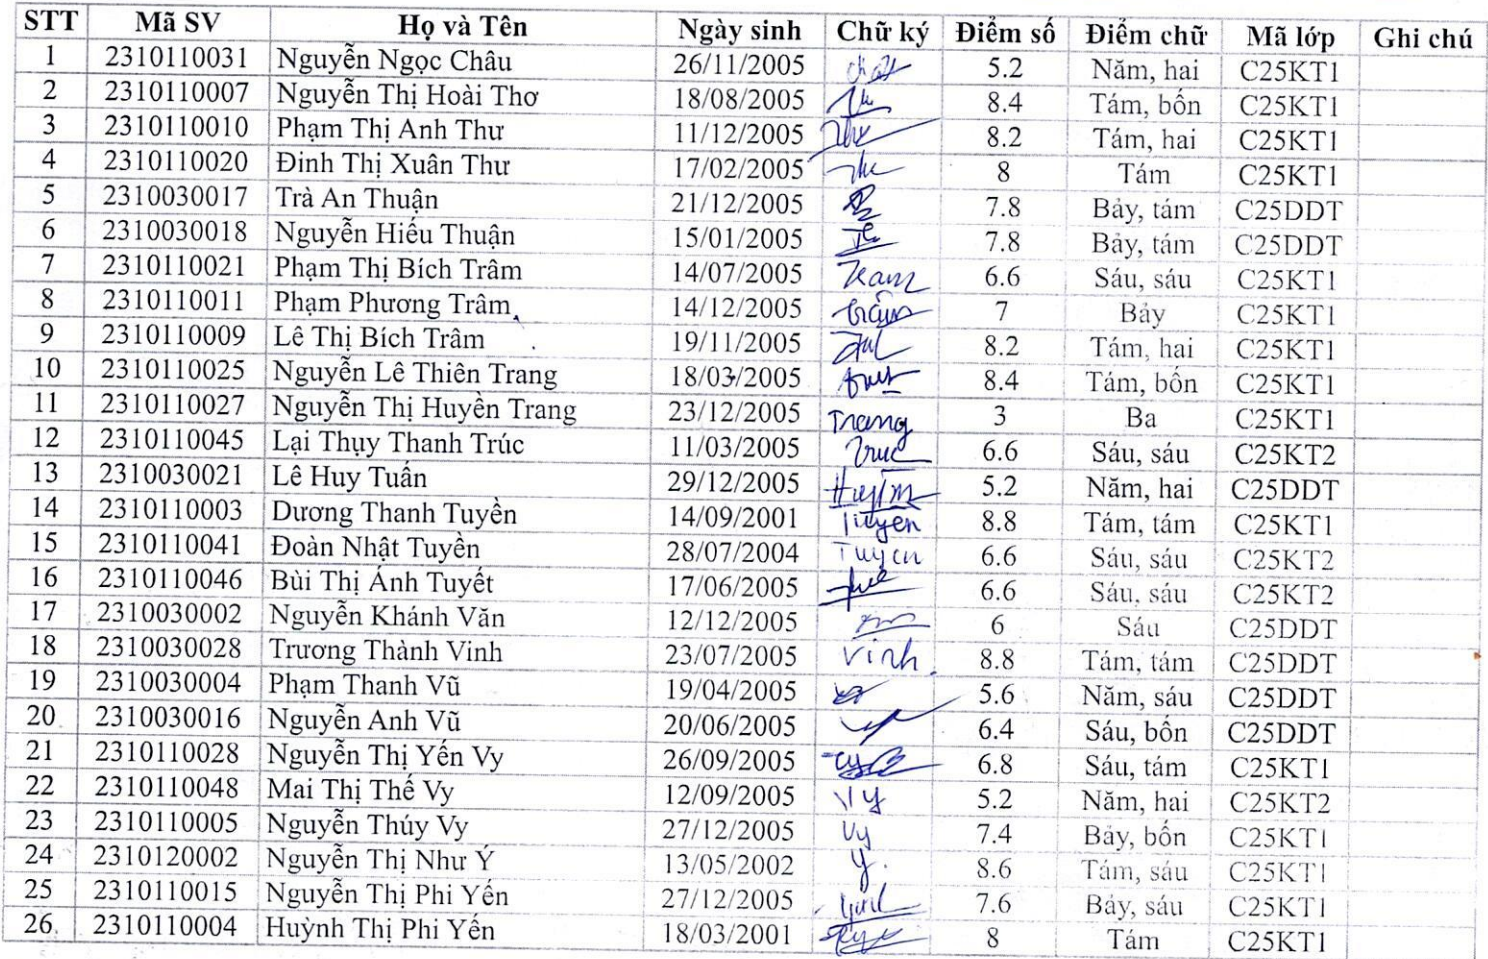 STT Mã SV Họ và Tên Ngày sinh Chữ ký Điểm số Điểm chữ Mã lớp Ghi chú
1 2310110031 Nguyễn Ngọc Châu 26/11/2005 5.2 Năm, hai C25KT1
2 2310110007 Nguyễn Thị Hoài Thơ 18/08/2005 8.4 Tám, bốn C25KT1
3 2310110010 Phạm Thị Anh Thư 11/12/2005 Thư 8.2 Tám, hai C25KT1
4 2310110020 Đinh Thị Xuân Thư 17/02/2005 8 Tám C25KT1
5 2310030017 Trà An Thuận 21/12/2005 7.8 Bảy, tám C25DDT
6 2310030018 Nguyễn Hiếu Thuận 15/01/2005 7.8 Bảy, tám C25DDT
7 2310110021 Phạm Thị Bích Trâm 14/07/2005 6.6 Sáu, sáu C25KT1
8 2310110011 Phạm Phương Trâm 14/12/2005 Trâm 7 Bảy C25KT1
9 2310110009 Lê Thị Bích Trâm 19/11/2005 8.2 Tám, hai C25KT1
10 2310110025 Nguyễn Lê Thiên Trang 18/03/2005 8.4 Tám, bốn C25KT1
11 2310110027 Nguyễn Thị Huyền Trang 23/12/2005 Trang 3 Ba C25KT1
12 2310110045 Lại Thụy Thanh Trúc 11/03/2005 Truc 6.6 Sáu, sáu C25KT2
13 2310030021 Lê Huy Tuấn 29/12/2005 5.2 Năm, hai C25DDT
14 2310110003 Dương Thanh Tuyền 14/09/2001 Tuyen 8.8 Tám, tám C25KT1
15 2310110041 Đoàn Nhật Tuyền 28/07/2004 Tuyen 6.6 Sáu, sáu C25KT2
16 2310110046 Bùi Thị Ánh Tuyết 17/06/2005 6.6 Sáu, sáu C25KT2
17 2310030002 Nguyễn Khánh Văn 12/12/2005 6 Sáu C25DDT
18 2310030028 Trương Thành Vinh 23/07/2005 Vinh 8.8 Tám, tám C25DDT
19 2310030004 Phạm Thanh Vũ 19/04/2005 5.6 Năm, sáu C25DDT
20 2310030016 Nguyễn Anh Vũ 20/06/2005 6.4 Sáu, bốn C25DDT
21 2310110028 Nguyễn Thị Yến Vy 26/09/2005 6.8 Sáu, tám C25KT1
22 2310110048 Mai Thị Thế Vy 12/09/2005 Vy 5.2 Năm, hai C25KT2
23 2310110005 Nguyễn Thúy Vy 27/12/2005 Vy 7.4 Bảy, bốn C25KT1
24 2310120002 Nguyễn Thị Như Ý 13/05/2002 Ý. 8.6 Tám, sáu C25KT1
25 2310110015 Nguyễn Thị Phi Yến 27/12/2005 7.6 Bảy, sáu C25KT1
26 2310110004 Huỳnh Thị Phi Yến 18/03/2001 8 Tám C25KT1